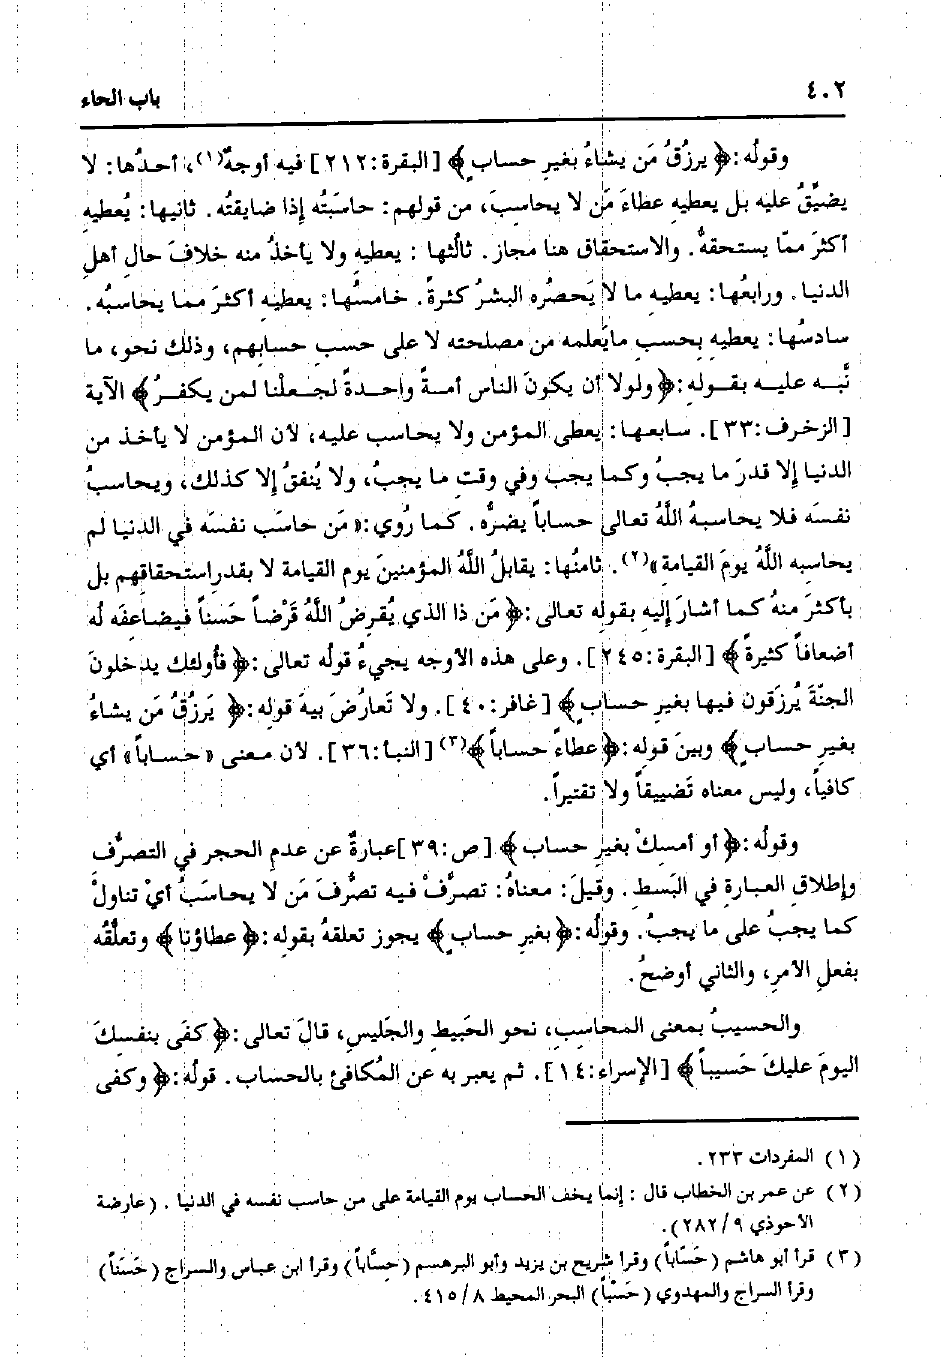 ٤٠٢
باب الحاء
وقولُه: ﴿ يرزُقُ مَن يشاءُ بغيرِ حسابٍ ﴾ [البقرة: ٢١٢] فيه أوجهٌ(١)، أحدُها: لا
يضيِّقُ عليه بل يعطيهِ عطاءَ مَن لا يحاسِبَ، من قولهم: حاسَبْتُه إذا ضايقتُه. ثانيها: يُعطيهِ
أكثرَ ممّا يستحقهُ. والاستحقاق هنا مجاز. ثالثها : يعطيهِ ولا يأخذُ منه خلافَ حالِ أهلِ
الدنيا. ورابعُها: يعطيه ما لا يَحصُره البشرُ كثرةً. خامسُها: يعطيه أكثرَ مما يحاسبُه.
سادسُها: يعطيهِ بحسبِ مايَعلمه من مصلحته لا على حسبِ حسابهم، وذلك نحو، ما
نَّبه عليه بقولهِ: ﴿ ولولا أن يكونَ الناس أمةً واحدةً لجعلْنا لمن يكفرُ ﴾ الآية
[الزخرف: ٣٣]. سابعها: يعطي المؤمن ولا يحاسب عليه، لأن المؤمن لا يأخذ من
الدنيا إلا قدرَ ما يجبُ وكما يجب وفي وقتِ ما يجبُ، ولا يُنفقُ إلا كذلك، ويحاسبُ
نفسَه فلا يحاسبهُ اللَّهُ تعالى حساباً يضرُّه. كما رُوي: « مَن حاسَب نفسَه في الدنيا لم
يحاسِبه اللَّهُ يومَ القيامة »(٢). ثامنُها: يقابلُ اللَّهُ المؤمنينَ يوم القيامة لا بقدرِ استحقاقهم بل
بأكثرَ منهُ كما أشارَ إليه بقولِه تعالى: ﴿ مَن ذا الذي يُقرِضُ اللَّهَ قَرْضاً حَسناً فيضاعفَه لُه
أضعافاً كثيرةً ﴾ [البقرة: ٢٤٥]. وعلى هذه الأوجه يجيءُ قولُه تعالى: ﴿ فأولئك يدخلونَ
الجنّةَ يُرزَقون فيها بغيرِ حسابٍ ﴾ [غافر: ٤٠]. ولا تَعارُضَ بيهَ قولِه: ﴿ يَرزُقُ مَن يشاءُ
بغيرِ حسابٍ ﴾ وبينَ قولِه: ﴿ عطاءً حساباً ﴾(٣) [النبأ: ٣٦]. لأن معنى « حساباً » أي
كافياً، وليس معناه تَضييقاً ولا تقتيراً.
وقولُه: ﴿ أو أمسِكْ بغيرِ حساب ﴾ [ص: ٣٩] عبارةٌ عن عدمِ الحجر في التصرُّف
وإطلاقِ العبارةِ في البَسط. وقيلَ: معناهُ: تصرَّفْ فيه تصرُّفَ مَن لا يحاسَبُ أيْ تناولْ
كما يجبُ على ما يجبُ. وقولُه: ﴿ بغيرِ حسابٍ ﴾ يجوز تعلقهُ بقوله: ﴿ عطاؤنا ﴾ وتعلُّقُه
بفعلِ الأمرِ، والثاني أوضحُ.
والحسيبُ بمعنى المحاسِبِ، نحو الخَبيطِ والجَليس، قالَ تعالى: ﴿ كفَى بنفسِكَ
اليومَ عليكَ حَسيباً ﴾ [الإسراء: ١٤]. ثم يعبر به عن المُكافئ بالحساب. قولُه: ﴿ وكفى
(١) المفردات ٢٣٣.
(٢) عن عمر بن الخطاب قال : إنما يخف الحساب يوم القيامة على من حاسب نفسه في الدنيا . (عارضة
الأحوذي ٩ / ٢٨٢).
(٣) قرأ أبو هاشم (حَسّاباً) وقرأ شريح بن يزيد وأبو البرهسم (حِسَّاباً) وقرأ ابن عباس والسراج (حَسَناً)
وقرأ السراج والمهدوي (حَسْباً) البحر المحيط ٨ / ٤١٥.